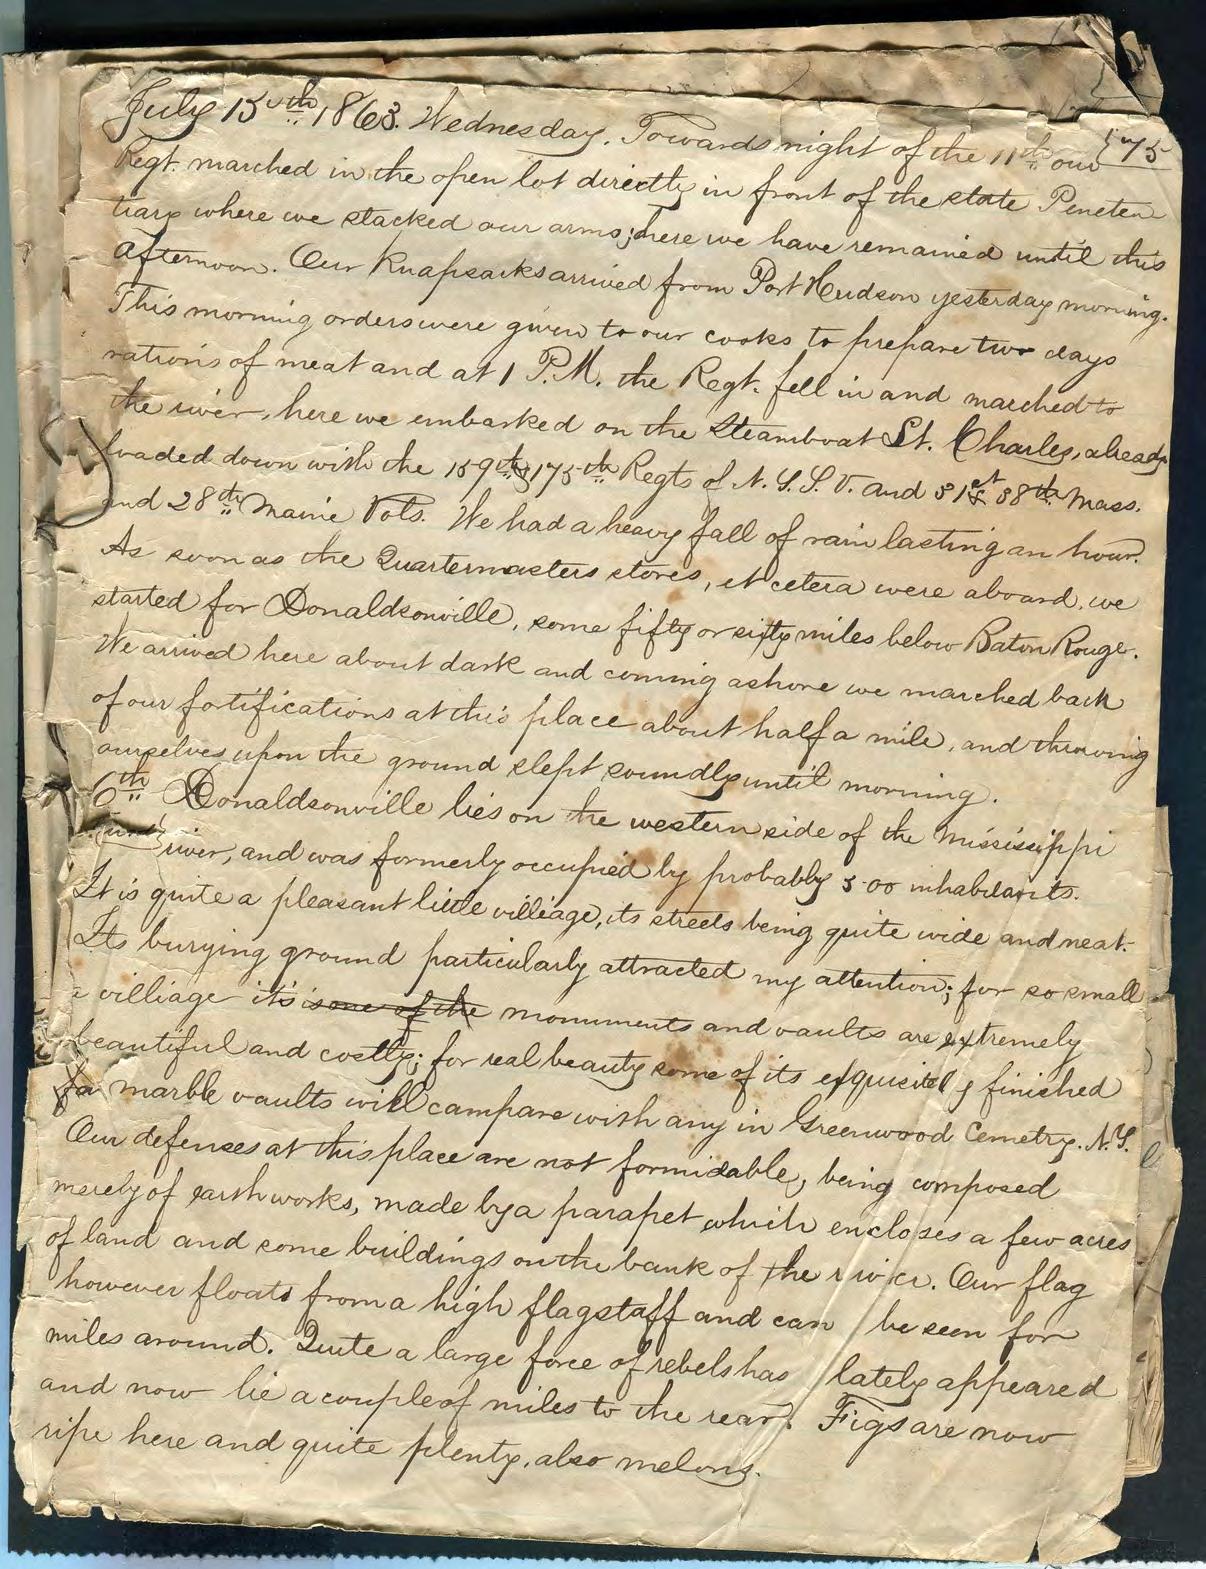 July 15th 1863. Wednesday. Towards night of the 11th our 75
Regt. marched in the open lot directly in front of the state Peneten
tiary where we stacked our arms; here we have remained until this
afternoon. Our Knapsacks arrived from Port Hudson yesterday morning.
This morning orders were given to our cooks to prepare two days
rations of meat and at 1 P.M. the Regt. fell in and marched to
the river, here we embarked on the Steamboat St. Charles, already
loaded down with the 159th & 175th Regts of N.Y.S.V. and 31st & 38th Mass.
and 28th Maine Vols. We had a heavy fall of rain lasting an hour.
As soon as the Quartermasters stores, et cetera were aboard, we
started for Donaldsonville, some fifty or sixty miles below Baton Rouge.
We arrived here about dark and coming ashore we marched back
of our fortifications at this place about half a mile, and throwing
ourselves upon the ground slept soundly until morning.
6th Donaldsonville lies on the western side of the Mississippi
river, and was formerly occupied by probably 500 inhabitants.
It is quite a pleasant little villiage, its streets being quite wide and neat.
Its burying ground particularly attracted my attention; for so small
a villiage its is one of the monuments and vaults are extremely
beautiful and costly; for real beauty some of its exquisitely finished
fa marble vaults will campare with any in Greenwood Cemetry. N.Y.
Our defenses at this place are not formidable, being composed
merely of earthworks, made by a parapet which encloses a few acres
of land and some buildings on the bank of the river. Our flag
however floats from a high flagstaff and can be seen for
miles around. Quite a large force of rebels has lately appeared
and now lie a couple of miles to the rear. Figs are now
ripe here and quite plenty, also melons.